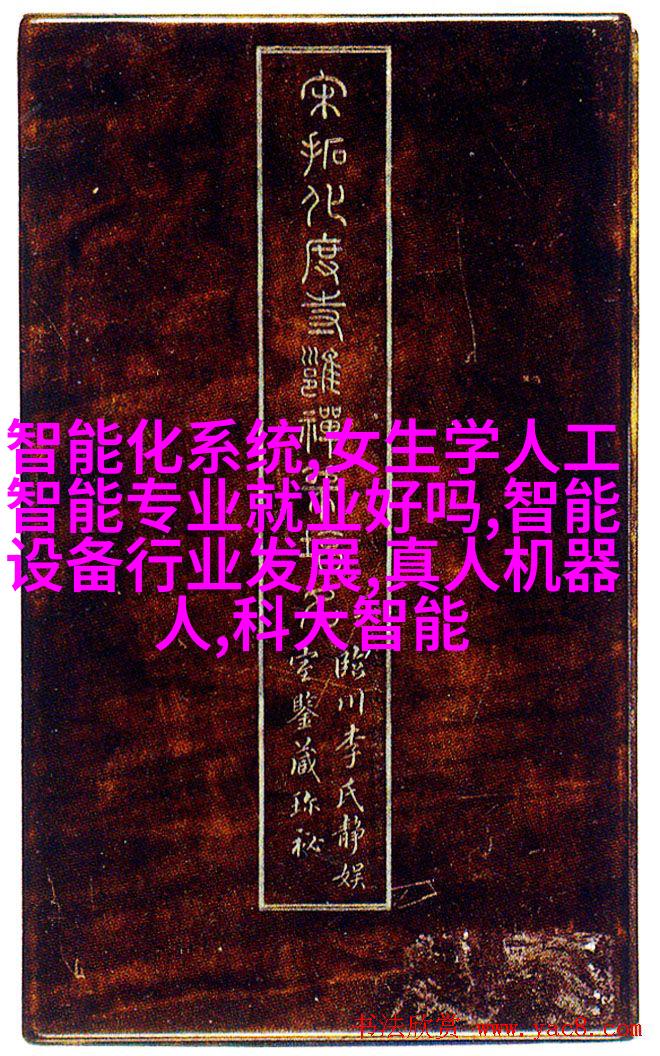 宋拓化度寺邕禪師塔銘
臨川李氏靜娱
室鑒藏珎祕
智能化系统,女生学人工
智能专业就业好吗,智能
设备行业发展,真人机器
人,科大智能
书法欣赏 www.yac8.com